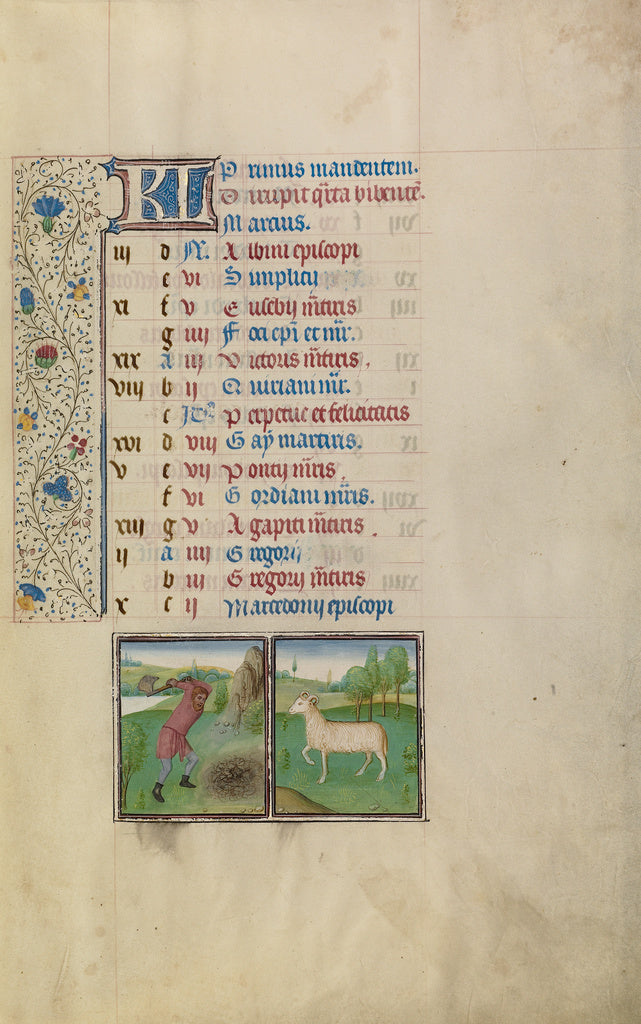 KL Primus mandentem.
Dirupit q̄rta bibentē.
Marcius.
iij d N. Albini episcopi
e vi Simplicij
xi f v Eusebij m̄tiris
g iiij Foci ep̄i et mr̄.
xix a iij Victoris m̄tiris.
viij b ij Quiriani mr̄.
c Perpetue et felicitatis
xvi d viij Gaÿ martiris.
v e vij Pontij mr̄is.
f vi Gordiani mr̄is.
xiij g v Agapiti m̄tiris.
ij a iiij Gregorij
b iij Gregorij m̄tiris
x c ij Macedonij episcopi